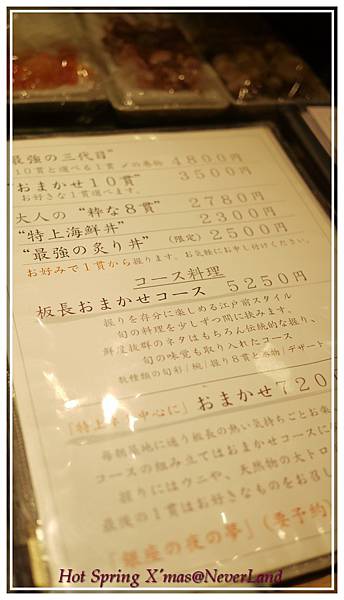 最強の三代目”
10貫と選べる1貫 〆の巻物 4800円
“おまかせ10貫” 3500円
お好きな1貫選べます。
大人の “粋な8貫” 2780円
“特上海鮮丼” 2300円
“最強の炙り丼” (限定) 2500円
お好みで1貫から握ります。お気軽にお申し付けください。
コース料理
板長おまかせコース 5250円
握りを存分に楽しめる江戸前スタイル
旬の料理を少しずつ間に挟みます。
鮮度抜群のネタはもちろん伝統的な握り、
旬の味覚も取り入れたコース
数種類の旬彩/椀/握り8貫と巻物/デザート
中心に」 おまかせ720
毎朝築地に通り板長の熱い気持ちごとお楽
コースの組み立てはおまかせコースに
握りにはウニや、天然物の大トロ
最後の1貫はお好きなものをお召し
「銀座の夜の夢」(要予約)
Hot Spring X'mas@NeverLand